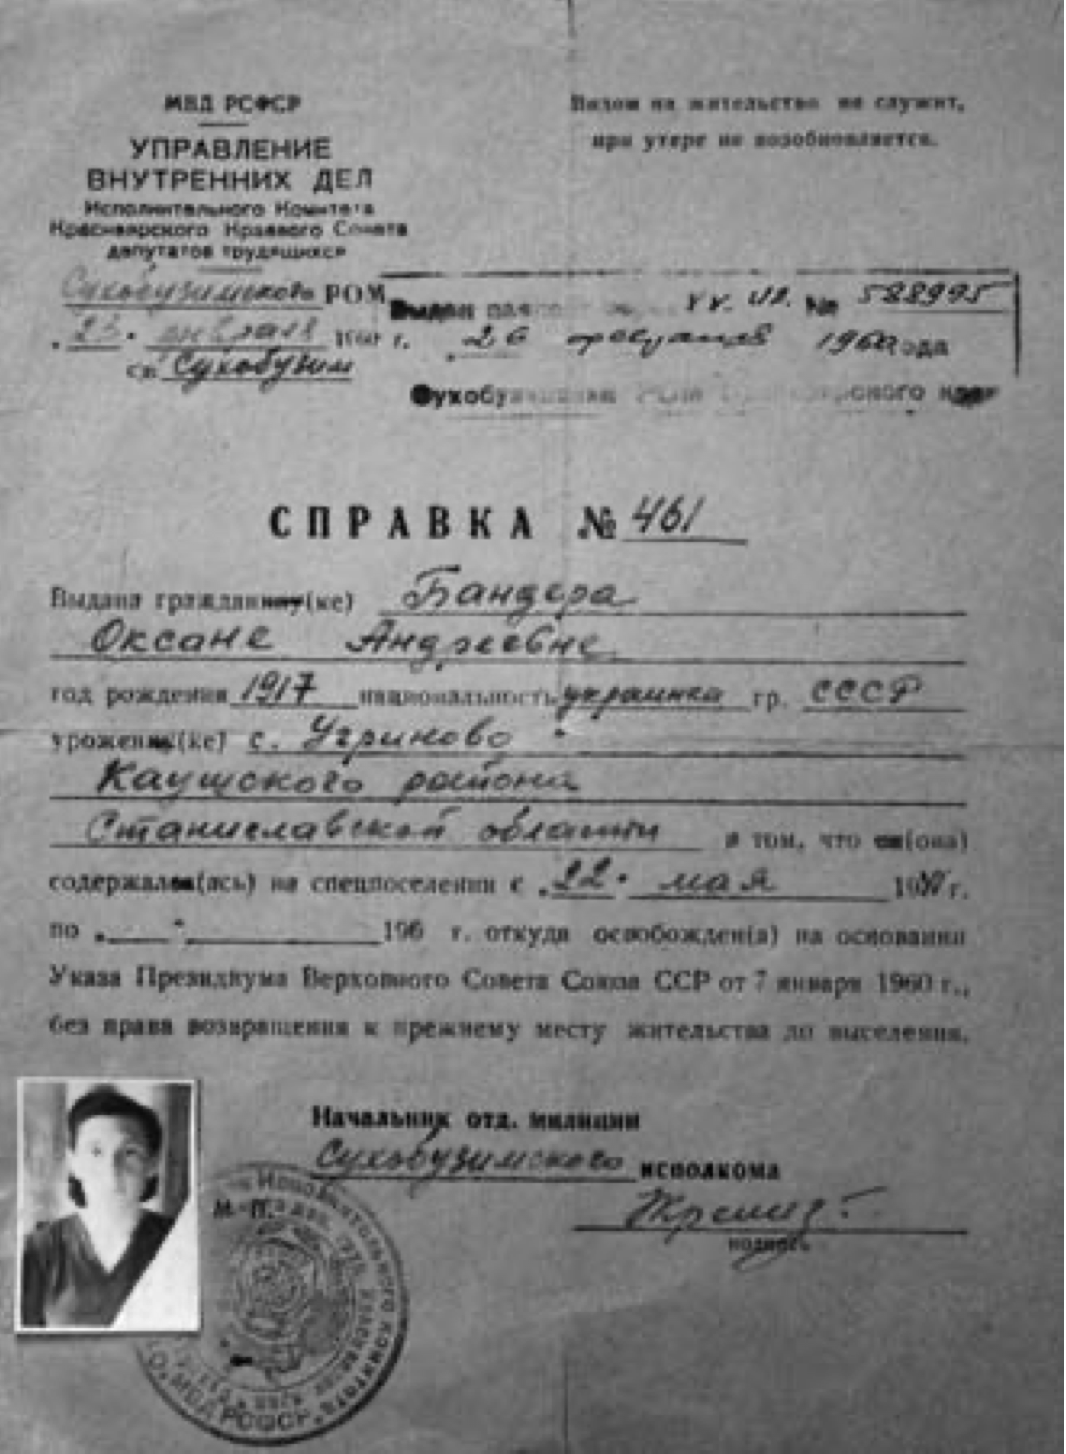 МВД РСФСР
УПРАВЛЕНИЕ
ВНУТРЕННИХ ДЕЛ
Исполнительного Комитета
Красноярского Краевого Совета
депутатов трудящихся
Сухобузимского РОМ
„23" января 1960 г.
с. Сухобузим
Видом на жительство не служит,
при утере не возобновляется.
Выдан № 588995
26 1960 года
СПРАВКА № 461
Выдана гражданину(ке) Бандера
Оксане Андреевне
год рождения 1917 национальность украинка гр. СССР
урожен(ке) с. Угриново
Каушского района
Станиславской области в том, что он(она)
содержался(ась) на спецпоселении с „22" мая г.
по „ " 196 г. откуда освобожден(а) на основании
Указа Президиума Верховного Совета Союза ССР от 7 января 1960 г.,
без права возвращения к прежнему месту жительства до выселения.
Начальник отд. милиции
Сухобузимского исполкома
подпись
М. П.
МВД РСФСР